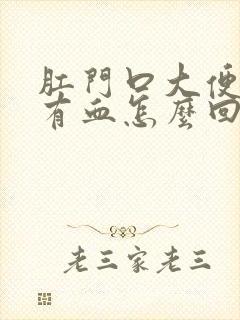 肛門口大便
有血怎麼回
老三家老三